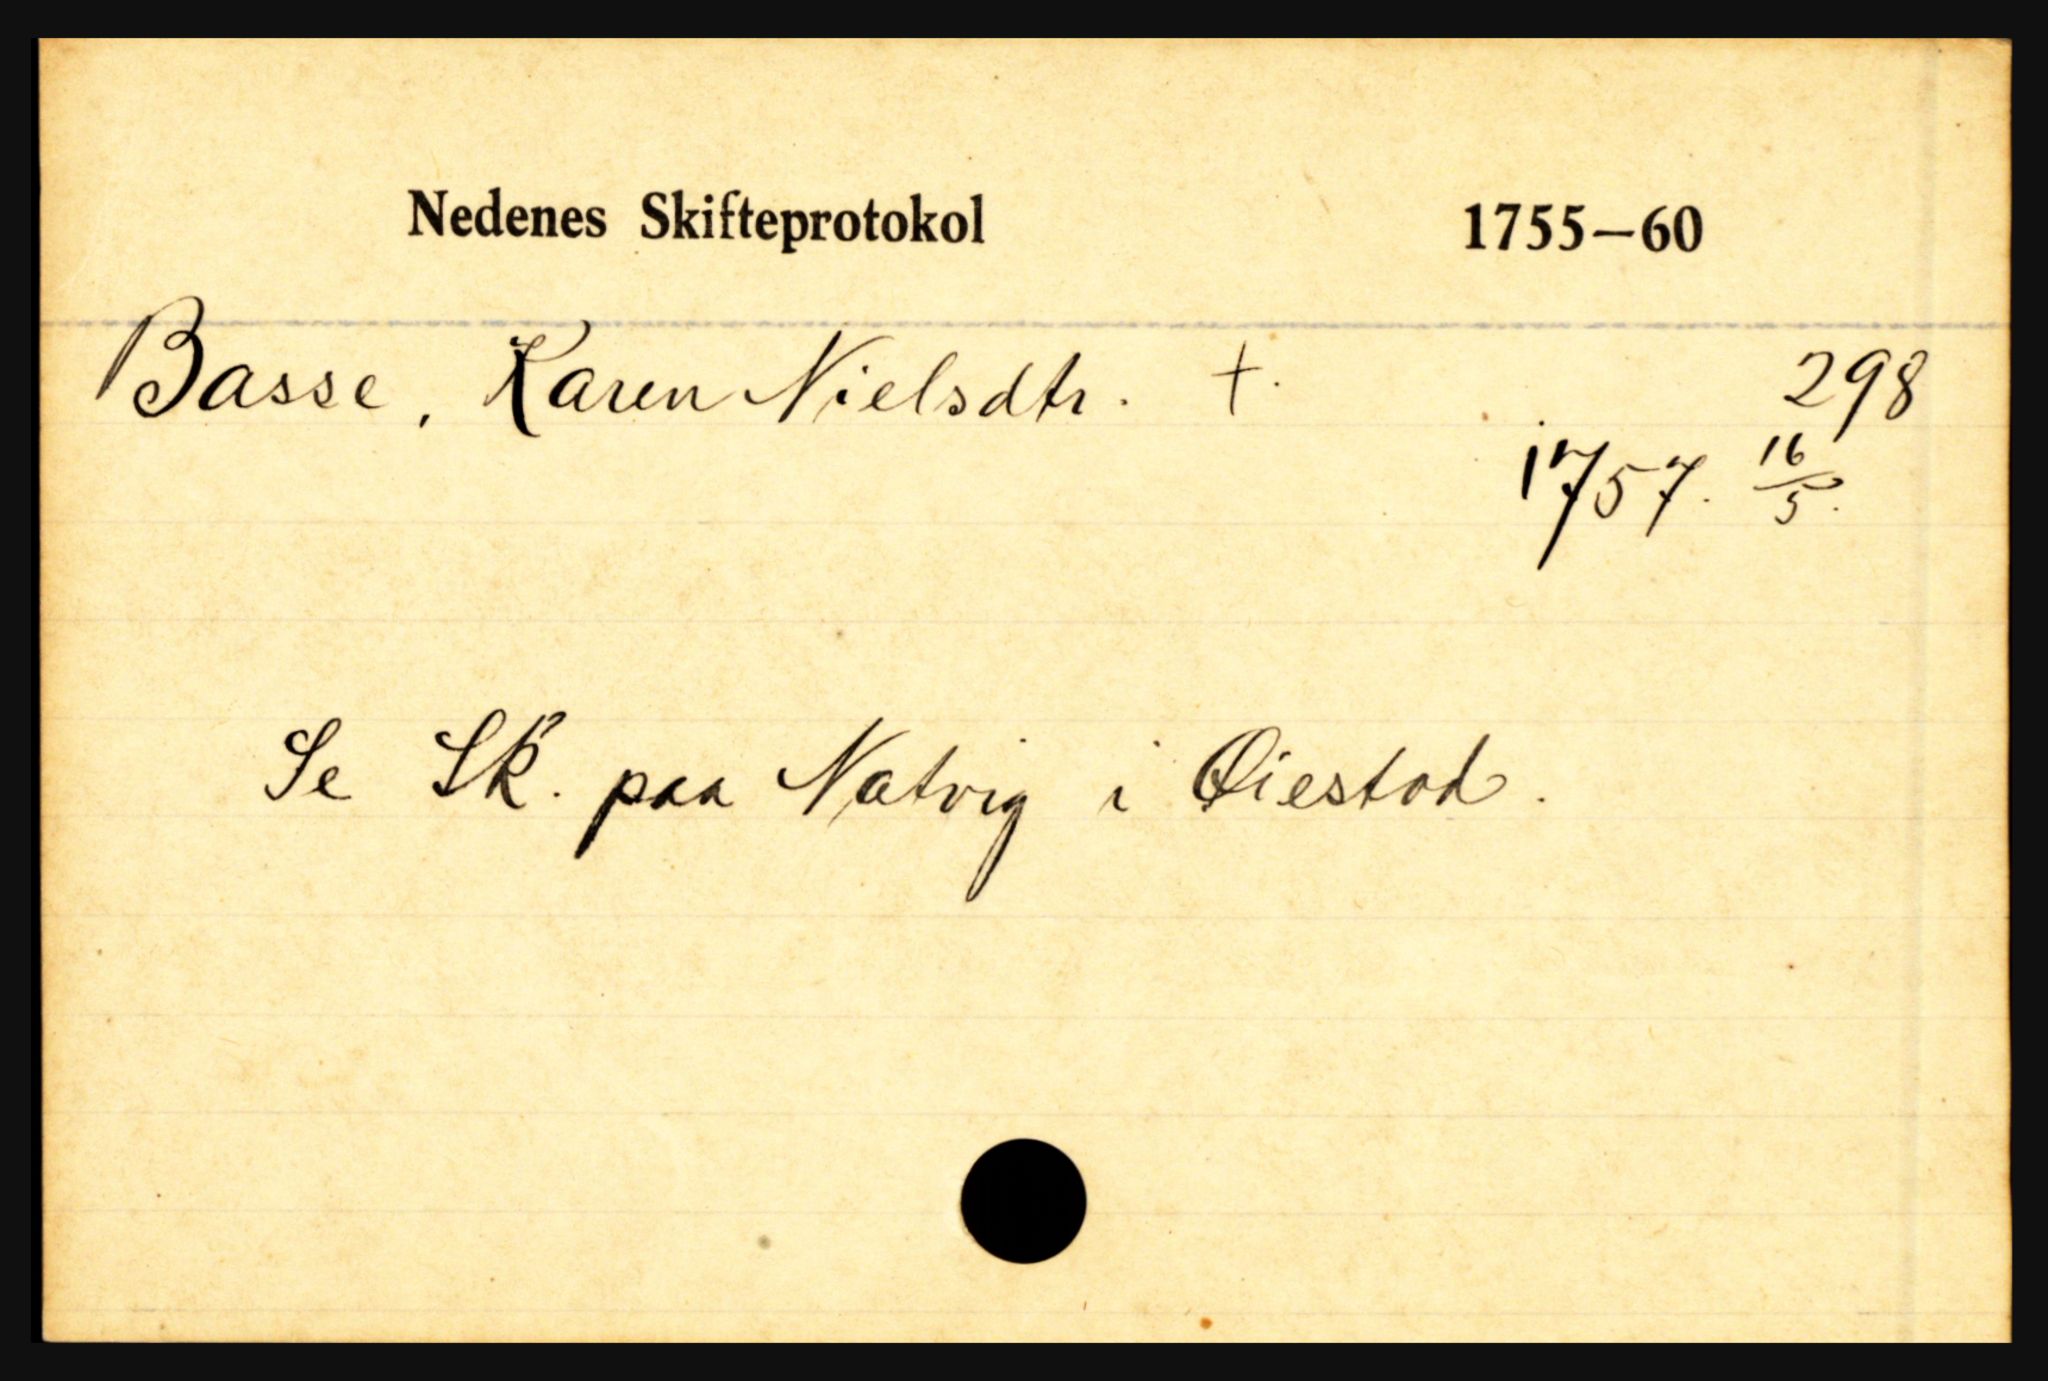 Nedenes Skifteprotokol 1755—60
Basse, Karen Nielsdtr. †. 298
1757. 16/5.
Se Sk. paa Natvig i Øiestad.